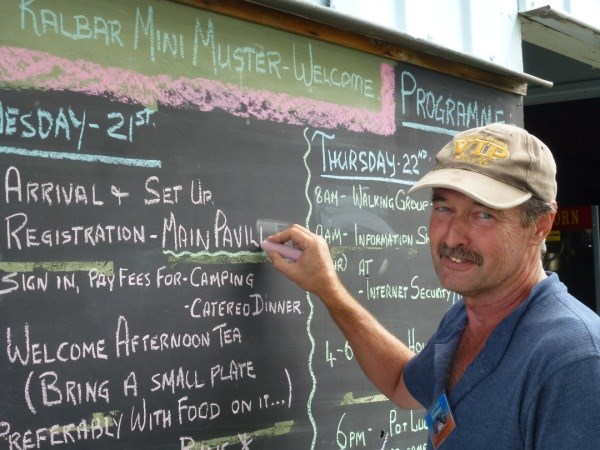 KALBAR MINI MUSTER-WELCOME
PROGRAMME
ESDAY-21ST
ARRIVAL + SET UP
REGISTRATION-MAIN PAVILI
SIGN IN, PAY FEES FOR-CAMPING
-CATERED DINNER
WELCOME AFTERNOON TEA
(BRING A SMALL PLATE
PREFERABLY WITH FOOD ON IT...)
THURSDAY-22ND
8AM-WALKING GROUP
AM-INFORMATION
AT
-INTERNET SECURITY
4-6
6PM-POT LUC
VIP